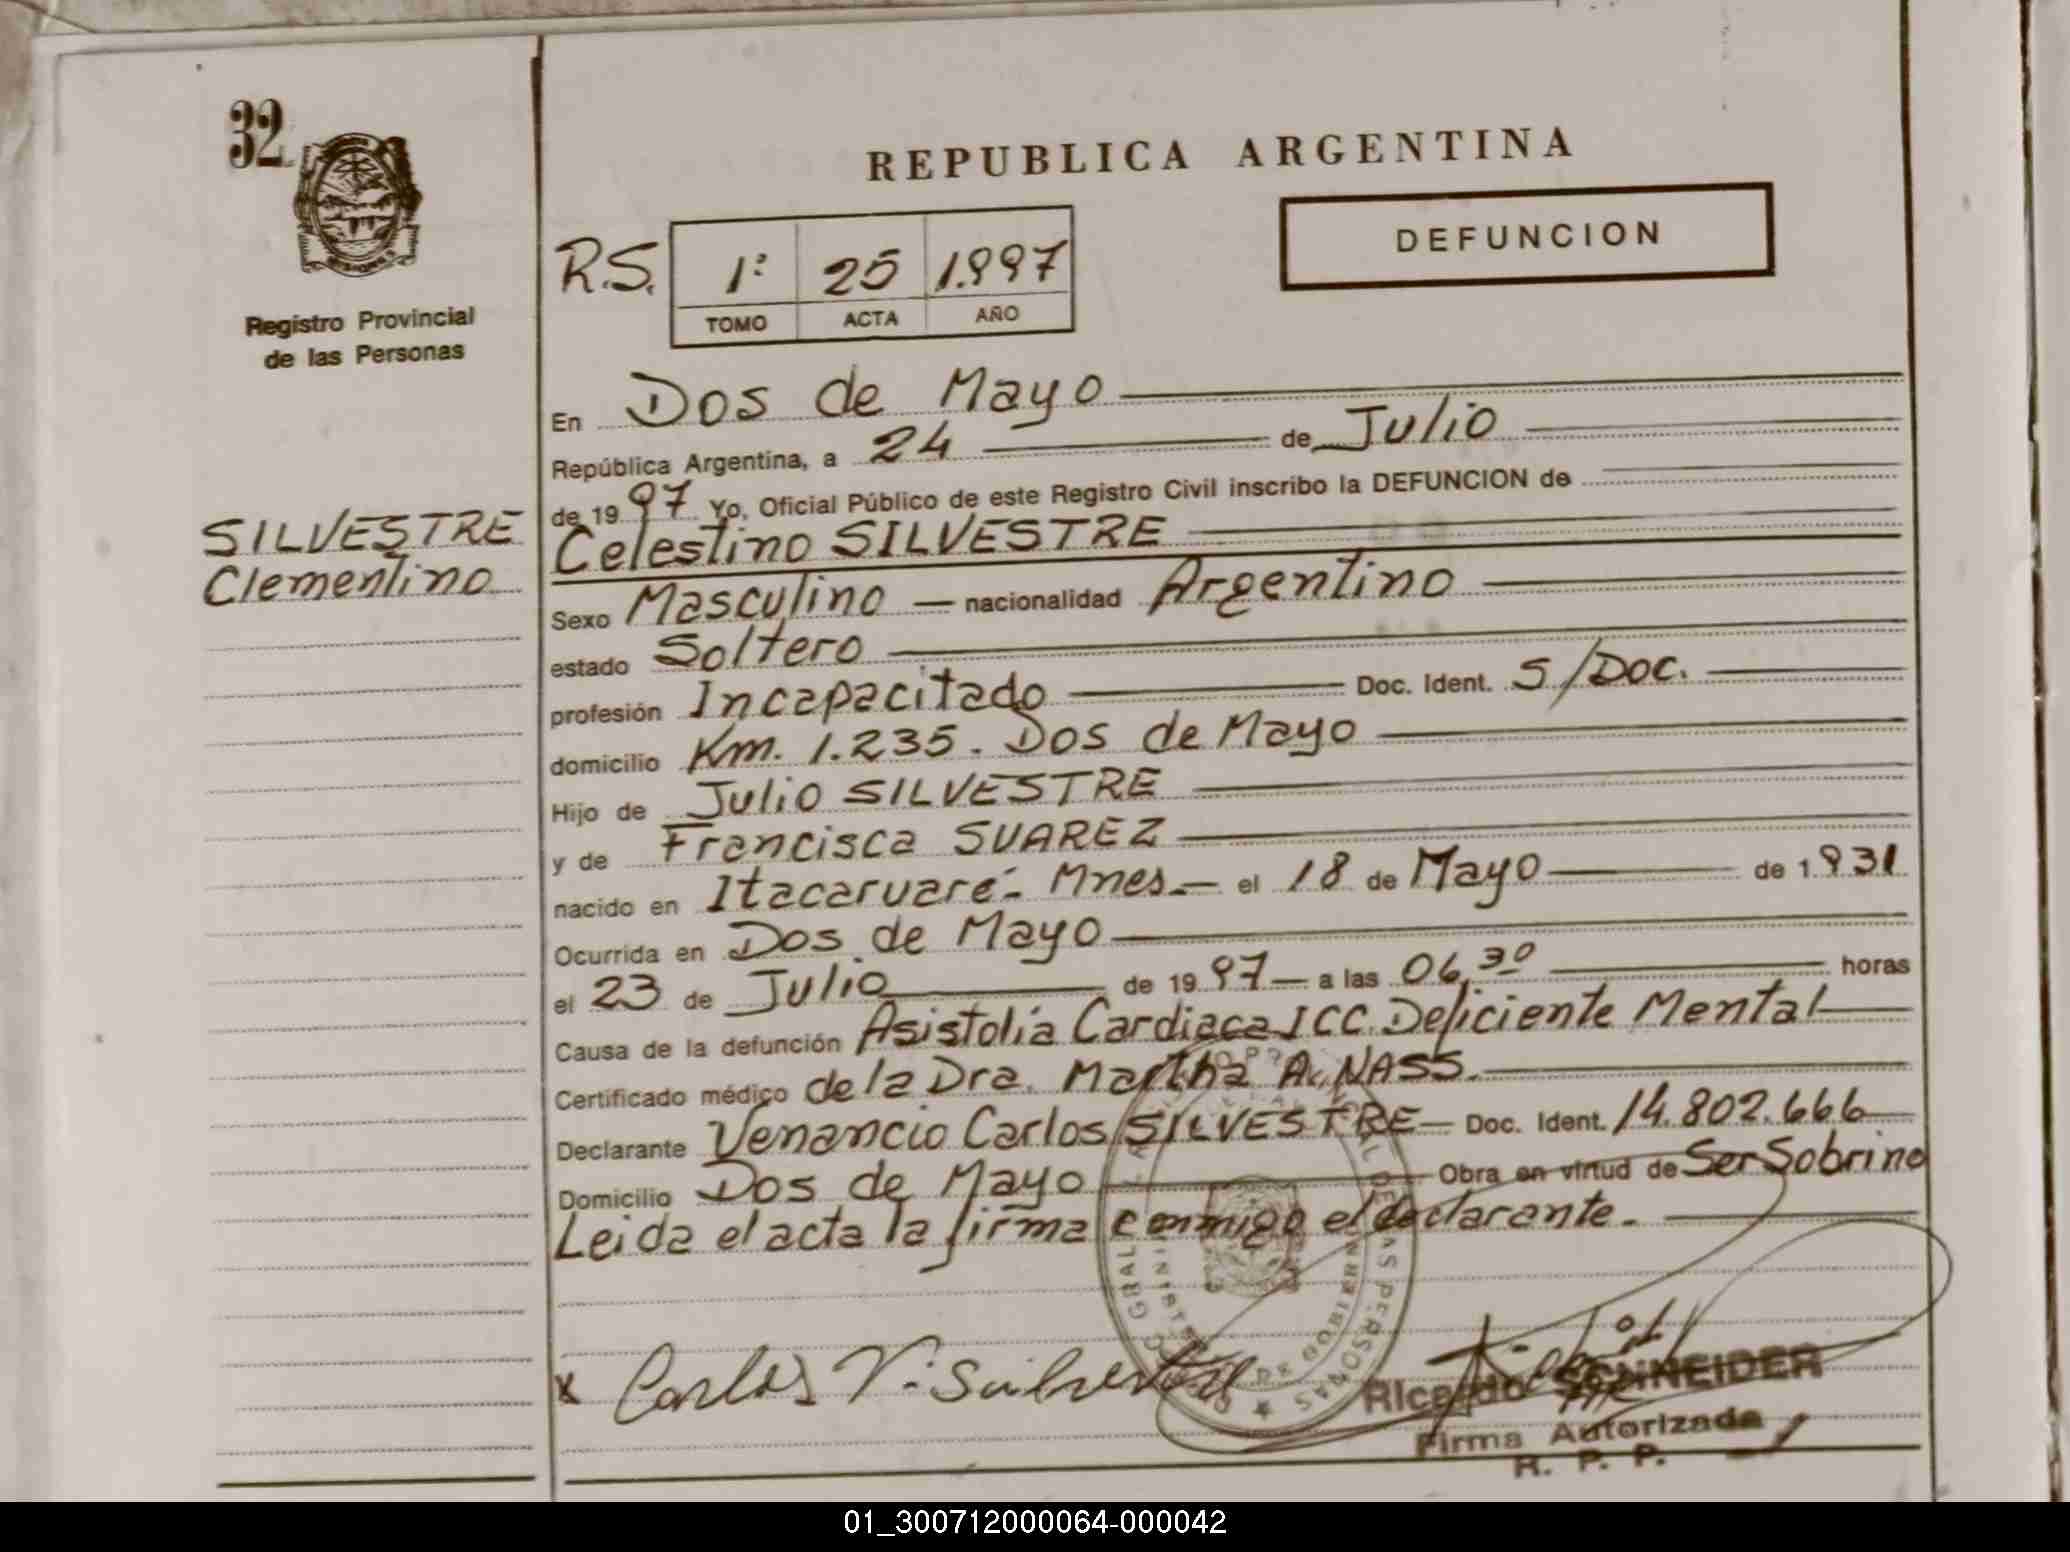 32
Registro Provincial
de las Personas
SILVESTRE
Clementino
REPUBLICA ARGENTINA
DEFUNCION
R.S. 1º 25 1.997
TOMO ACTA AÑO
En Dos de Mayo
República Argentina, a 24 de Julio
de 1997 Yo, Oficial Público de este Registro Civil inscribo la DEFUNCION de
Celestino SILVESTRE
Sexo Masculino — nacionalidad Argentino
estado Soltero
profesión Incapacitado Doc. Ident. S/Doc.
domicilio Km. 1.235. Dos de Mayo
Hijo de Julio SILVESTRE
y de Francisca SUAREZ
nacido en Itacaruaré - Mnes. — el 18 de Mayo de 1931
Ocurrida en Dos de Mayo
el 23 de Julio de 1997 — a las 06,30 horas
Causa de la defunción Asistolia Cardiaca ICC. Deficiente Mental
Certificado médico de la Dra. Martha A. NASS.
Declarante Venancio Carlos SILVESTRE — Doc. Ident. 14.802.666
Domicilio Dos de Mayo Obra en virtud de Ser Sobrino
Leida el acta la firma conmigo el declarante.
x Carlos V. Silvestre
Ricardo SCHNEIDER
Firma Autorizada
R. P. P.
01_300712000064-000042